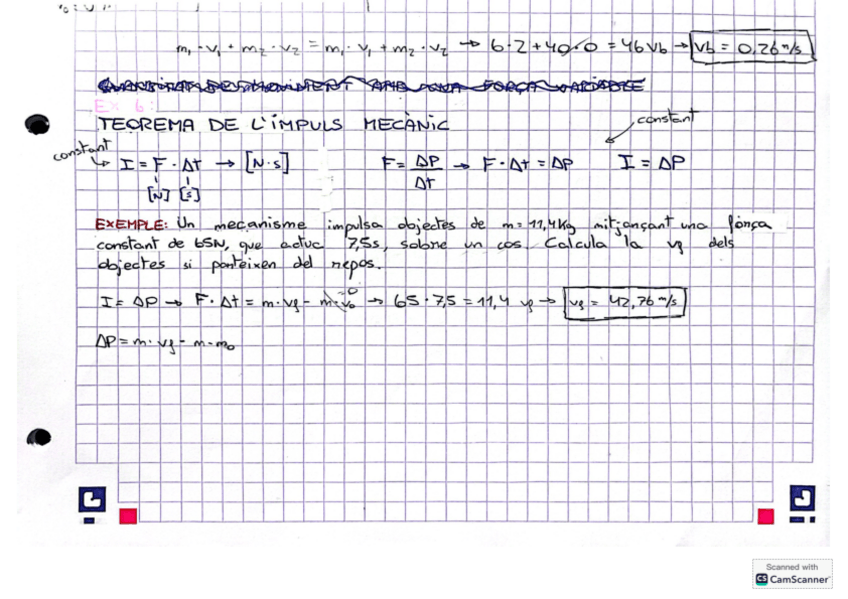 m₁·v₁ + m₂·v₂ = m₁·v₁ + m₂·v₂ → 6·2+40·0 = 46vb → vb = 0,26 m/s
EX 6:
TEOREMA DE L'IMPULS MECÀNIC
constant
constant
I = F · Δt → [N·s] F = ΔP/Δt → F·Δt = ΔP I = ΔP
[N] [s]
EXEMPLE: Un mecanisme impulsa objectes de m=11,4Kg mitjançant una força
constant de 65N, que actua 7,5s, sobre un cos. Calcula la vf dels
objectes si parteixen del repos.
I = ΔP → F·Δt = m·vf - m·v₀ → 65·7,5 = 11,4 vf → vf = 42,76 m/s
0
ΔP = m·vf - m·m₀
Scanned with
CS CamScanner